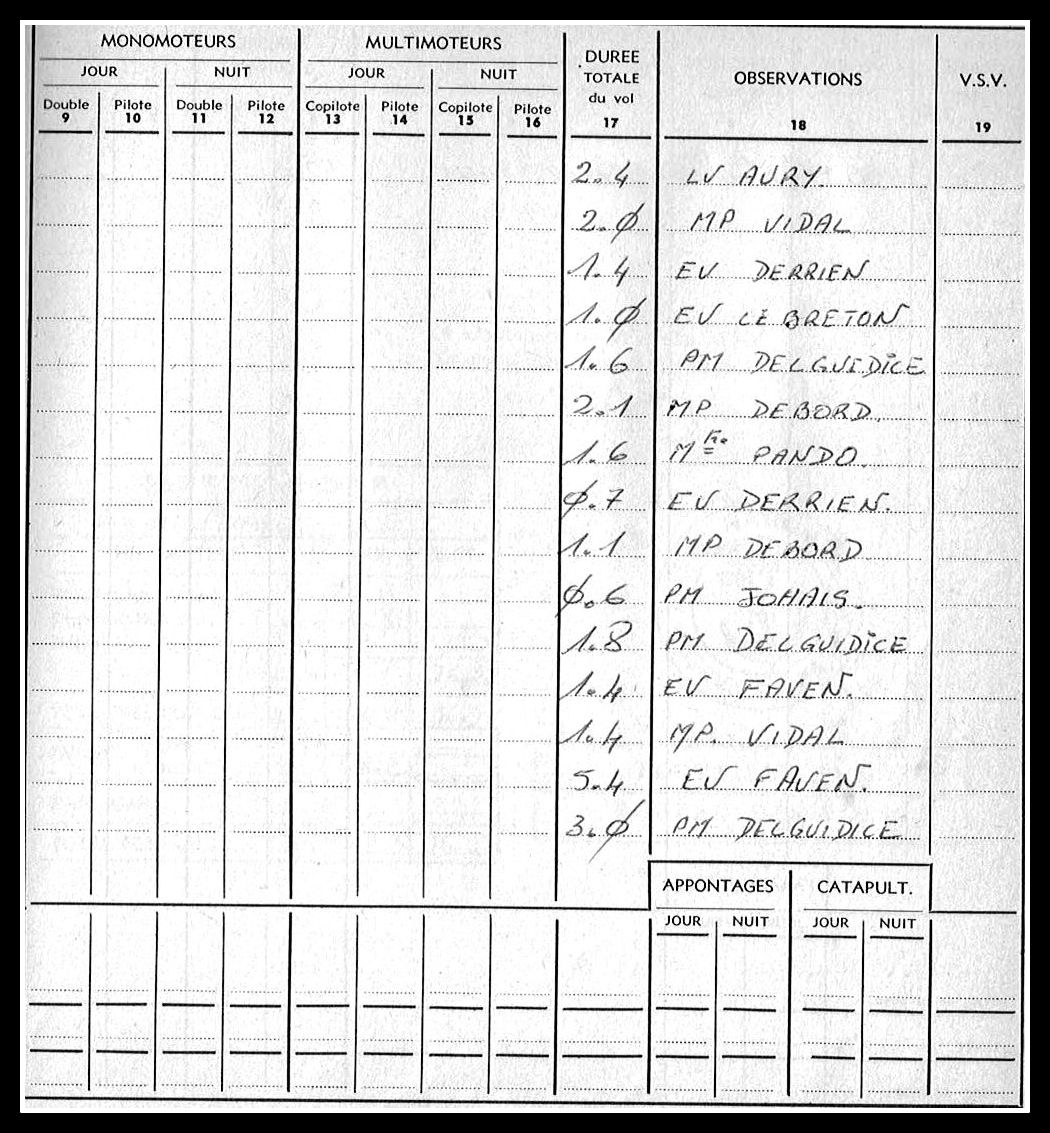 MONOMOTEURS MULTIMOTEURS DUREE TOTALE du vol OBSERVATIONS V.S.V.
JOUR NUIT JOUR NUIT
Double Pilote Double Pilote Copilote Pilote Copilote Pilote
9 10 11 12 13 14 15 16 17 18 19
2.4 LV AURY.
2.Ø MP VIDAL
1.4 EV DERRIEN
1.Ø EV LE BRETON
1.6 PM DELGUIDICE
2.1 MP DEBORD.
1.6 M PANDO.
Ø.7 EV DERRIEN.
1.1 MP DEBORD
Ø.6 PM JOHAIS.
1.8 PM DELGUIDICE
1.4 EV FAVEN.
1.4 MP. VIDAL
5.4 EV FAVEN.
3.Ø PM DELGUIDICE
APPONTAGES CATAPULT.
JOUR NUIT JOUR NUIT